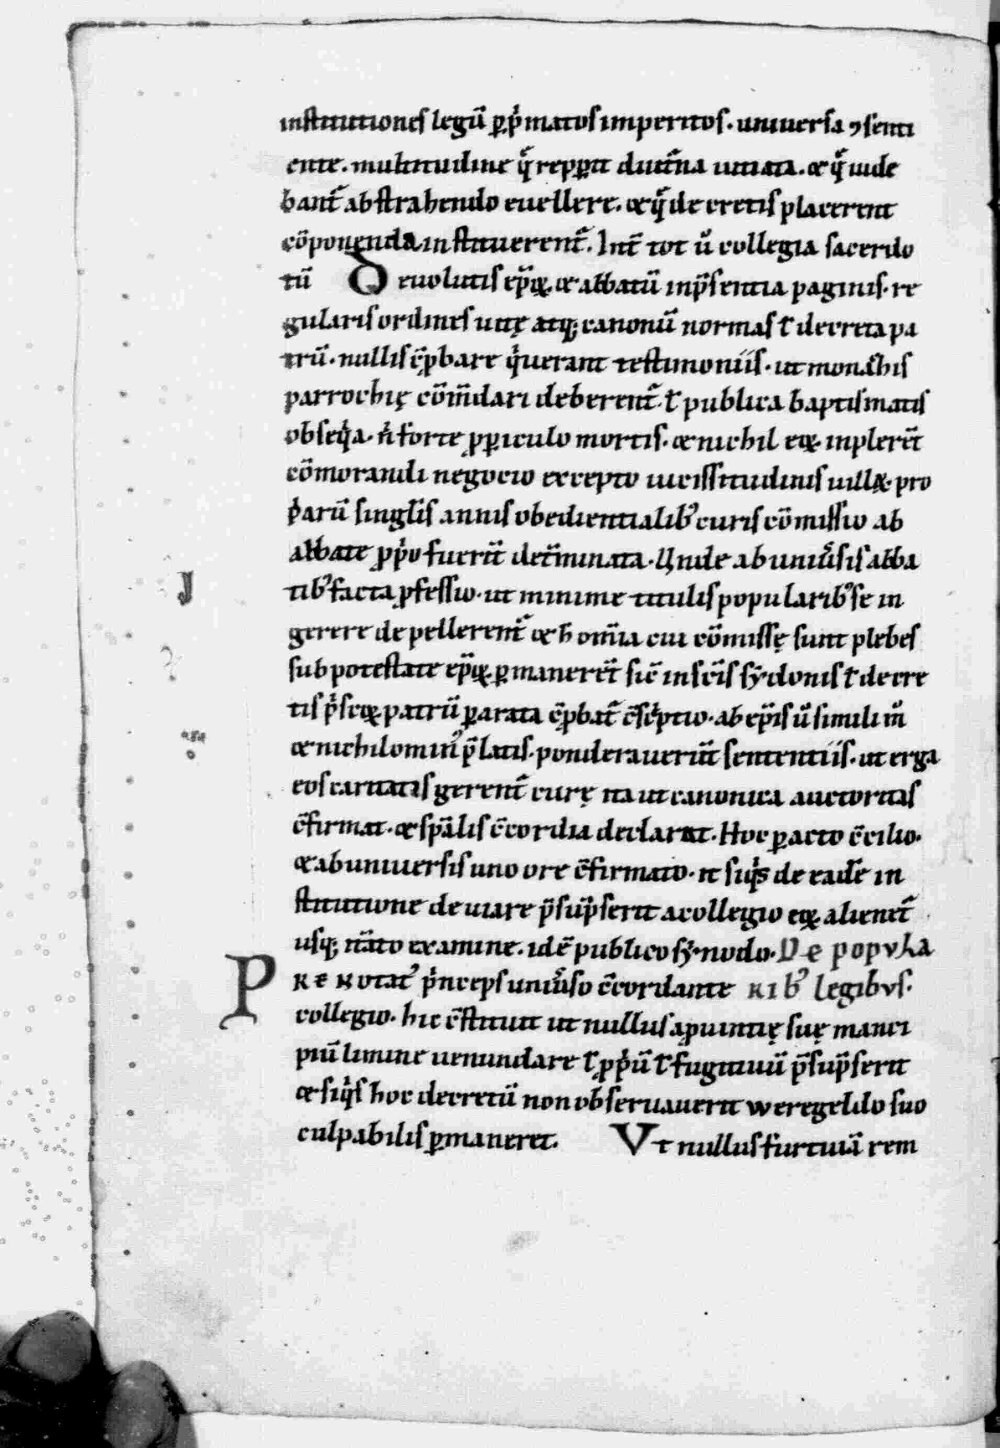 institutiones legū ꝑ pͥmatos imperitos · universa ꝯsenti
ente · multitudine q̄ repperit diut̄na uitiata · & q̄ uide
bant᷑ abstrahendo evellere · & q̄ decretis placerent
cōponenda instituerent᷑. Int̄ tot ū collegia sacerdo
tū Devolutis ep̄oꝝ & abbatū in p̄sentia paginis · re
gularis ordines uitę atqꝫ canonū normas ł decreta pa
trū · nullis c̄ꝓbare qͥuerant testimoniis · ut monachis
parrochię cōm̄dari deberent᷑ ł publica baptismatis
obseqͥa · n̄ forte ꝓ ꝑiculo mortis · & nichil eoꝝ inplerēt
cōmorandi negocio excepto uicissitudinis uillaꝝ · pro
pͥarū singlis annis obedientialibꝰ curis cōmissio ab
abbate ꝓpͥo fuerit det̄minata · Unde ab univͥsis abba
tibꝰ facta ꝓfessio · ut minime titulis popularibꝰ se in
gerere depellerent᷑ & h̄ om̄ia cui cōmissę sunt plebes
sub potestate ep̄oꝝ ꝑmanerēt sic̄ in sc̄is synodonis ł decre
tis pͥscoꝝ patrū ꝑarata c̄ꝓbat᷑ c̄scͥptio · ab ep̄is ū simili m̄
& nichilominꝰ p̄latis · ponderaverūt sententiis · ut erga
eos caritatis gerent᷑ curę ita ut canonica auctoritas
c̄firmat · & sp̄alis c̄cordia declarat · Hoc ꝑacto c̄cilio ·
& ab universis uno ore c̄firmato · it siqͥs de eadē in
stitutione deviare p̄sūpserit a collegio eoꝝ alienet᷑
usqꝫ it̄ato examine · idē publico synodo · De popvla
Prenotatꝰ pͥnceps univͥso c̄cordante ribꝰ legibvs ·
collegio · hic c̄stituit ut nullus a ꝓvintię suę manci
piū limine uenundare ł ꝓpͥū ł fugitivū p̄sūpserit
& siqͥs hoc decretū non observaverit weregeldo suo
culpabilis ꝑmaneret. Ut nullus furtivā rem